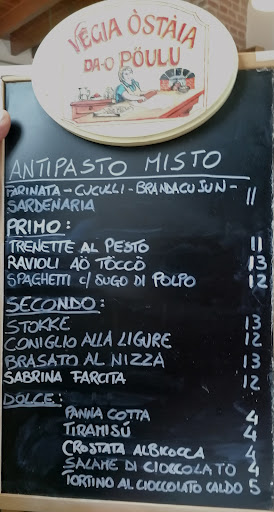 VËGIA ÒSTÀIA
DA-O PÖULU
ANTIPASTO MISTO
FARINATA - CUCULLI - BRANDACUJUN - 11
SARDENARIA
PRIMO:
TRENETTE AL PESTO 11
RAVIOLI AÖ TÖCCÒ 13
SPAGHETTI C/ SUGO DI POLPO 12
SECONDO:
STOKKE 13
CONIGLIO ALLA LIGURE 12
BRASATO AL NIZZA 13
SABRINA FARCITA 12
DOLCE:
PANNA COTTA 4
TIRAMISÚ 4
CROSTATA ALBICOCCA 4
SALAME DI CIOCCOLATO 4
TORTINO AL CIOCCOLATO CALDO 5